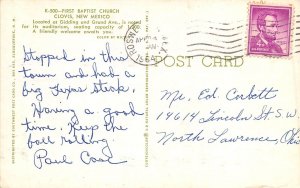 K-300—FIRST BAPTIST CHURCH
CLOVIS, NEW MEXICO
Located at Gidding and Grand Ave., is noted
for its auditorium, seating capacity of
A friendly welcome awaits you.
COLOR BY
POST CARD
Stopped in this
town and had a
big Texas Steak.
Having a good
time. Keep the
ball rolling
Paul
Mr. Ed. Corbett
14614 Lincoln St. S.W.
North Lawrence, Ohio